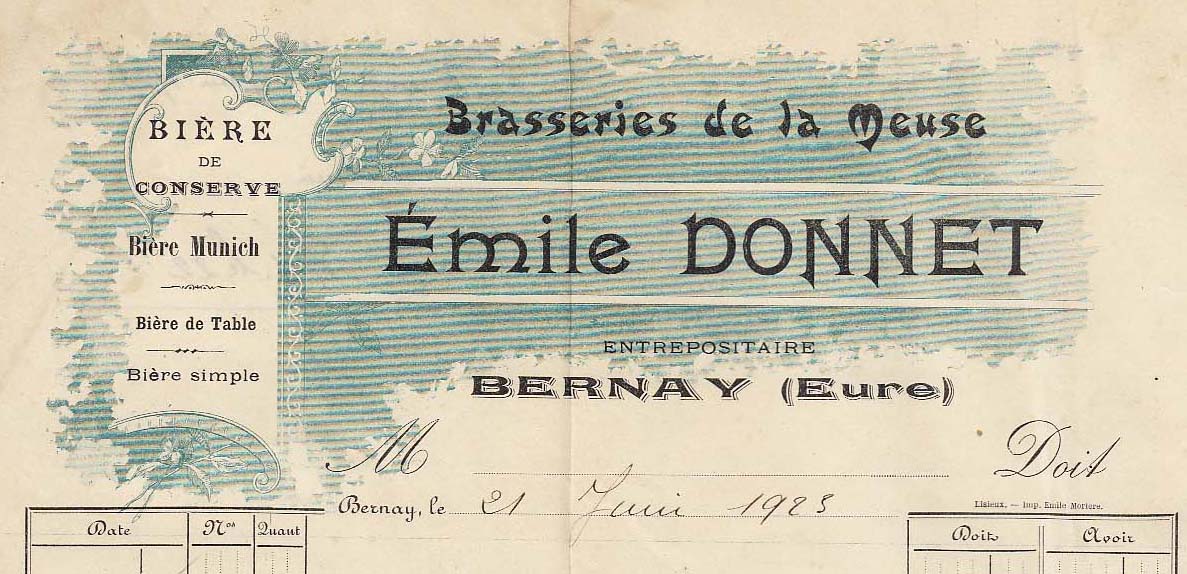 BIÈRE
DE
CONSERVE
Bière Munich
Bière de Table
Bière simple
Brasseries de la Meuse
Émile DONNET
ENTREPOSITAIRE
BERNAY (Eure)
M Doit
Bernay, le 21 Juin 1923
Lisieux. — Imp. Emile Moriere.
Date Nos Quant
Doit Avoir